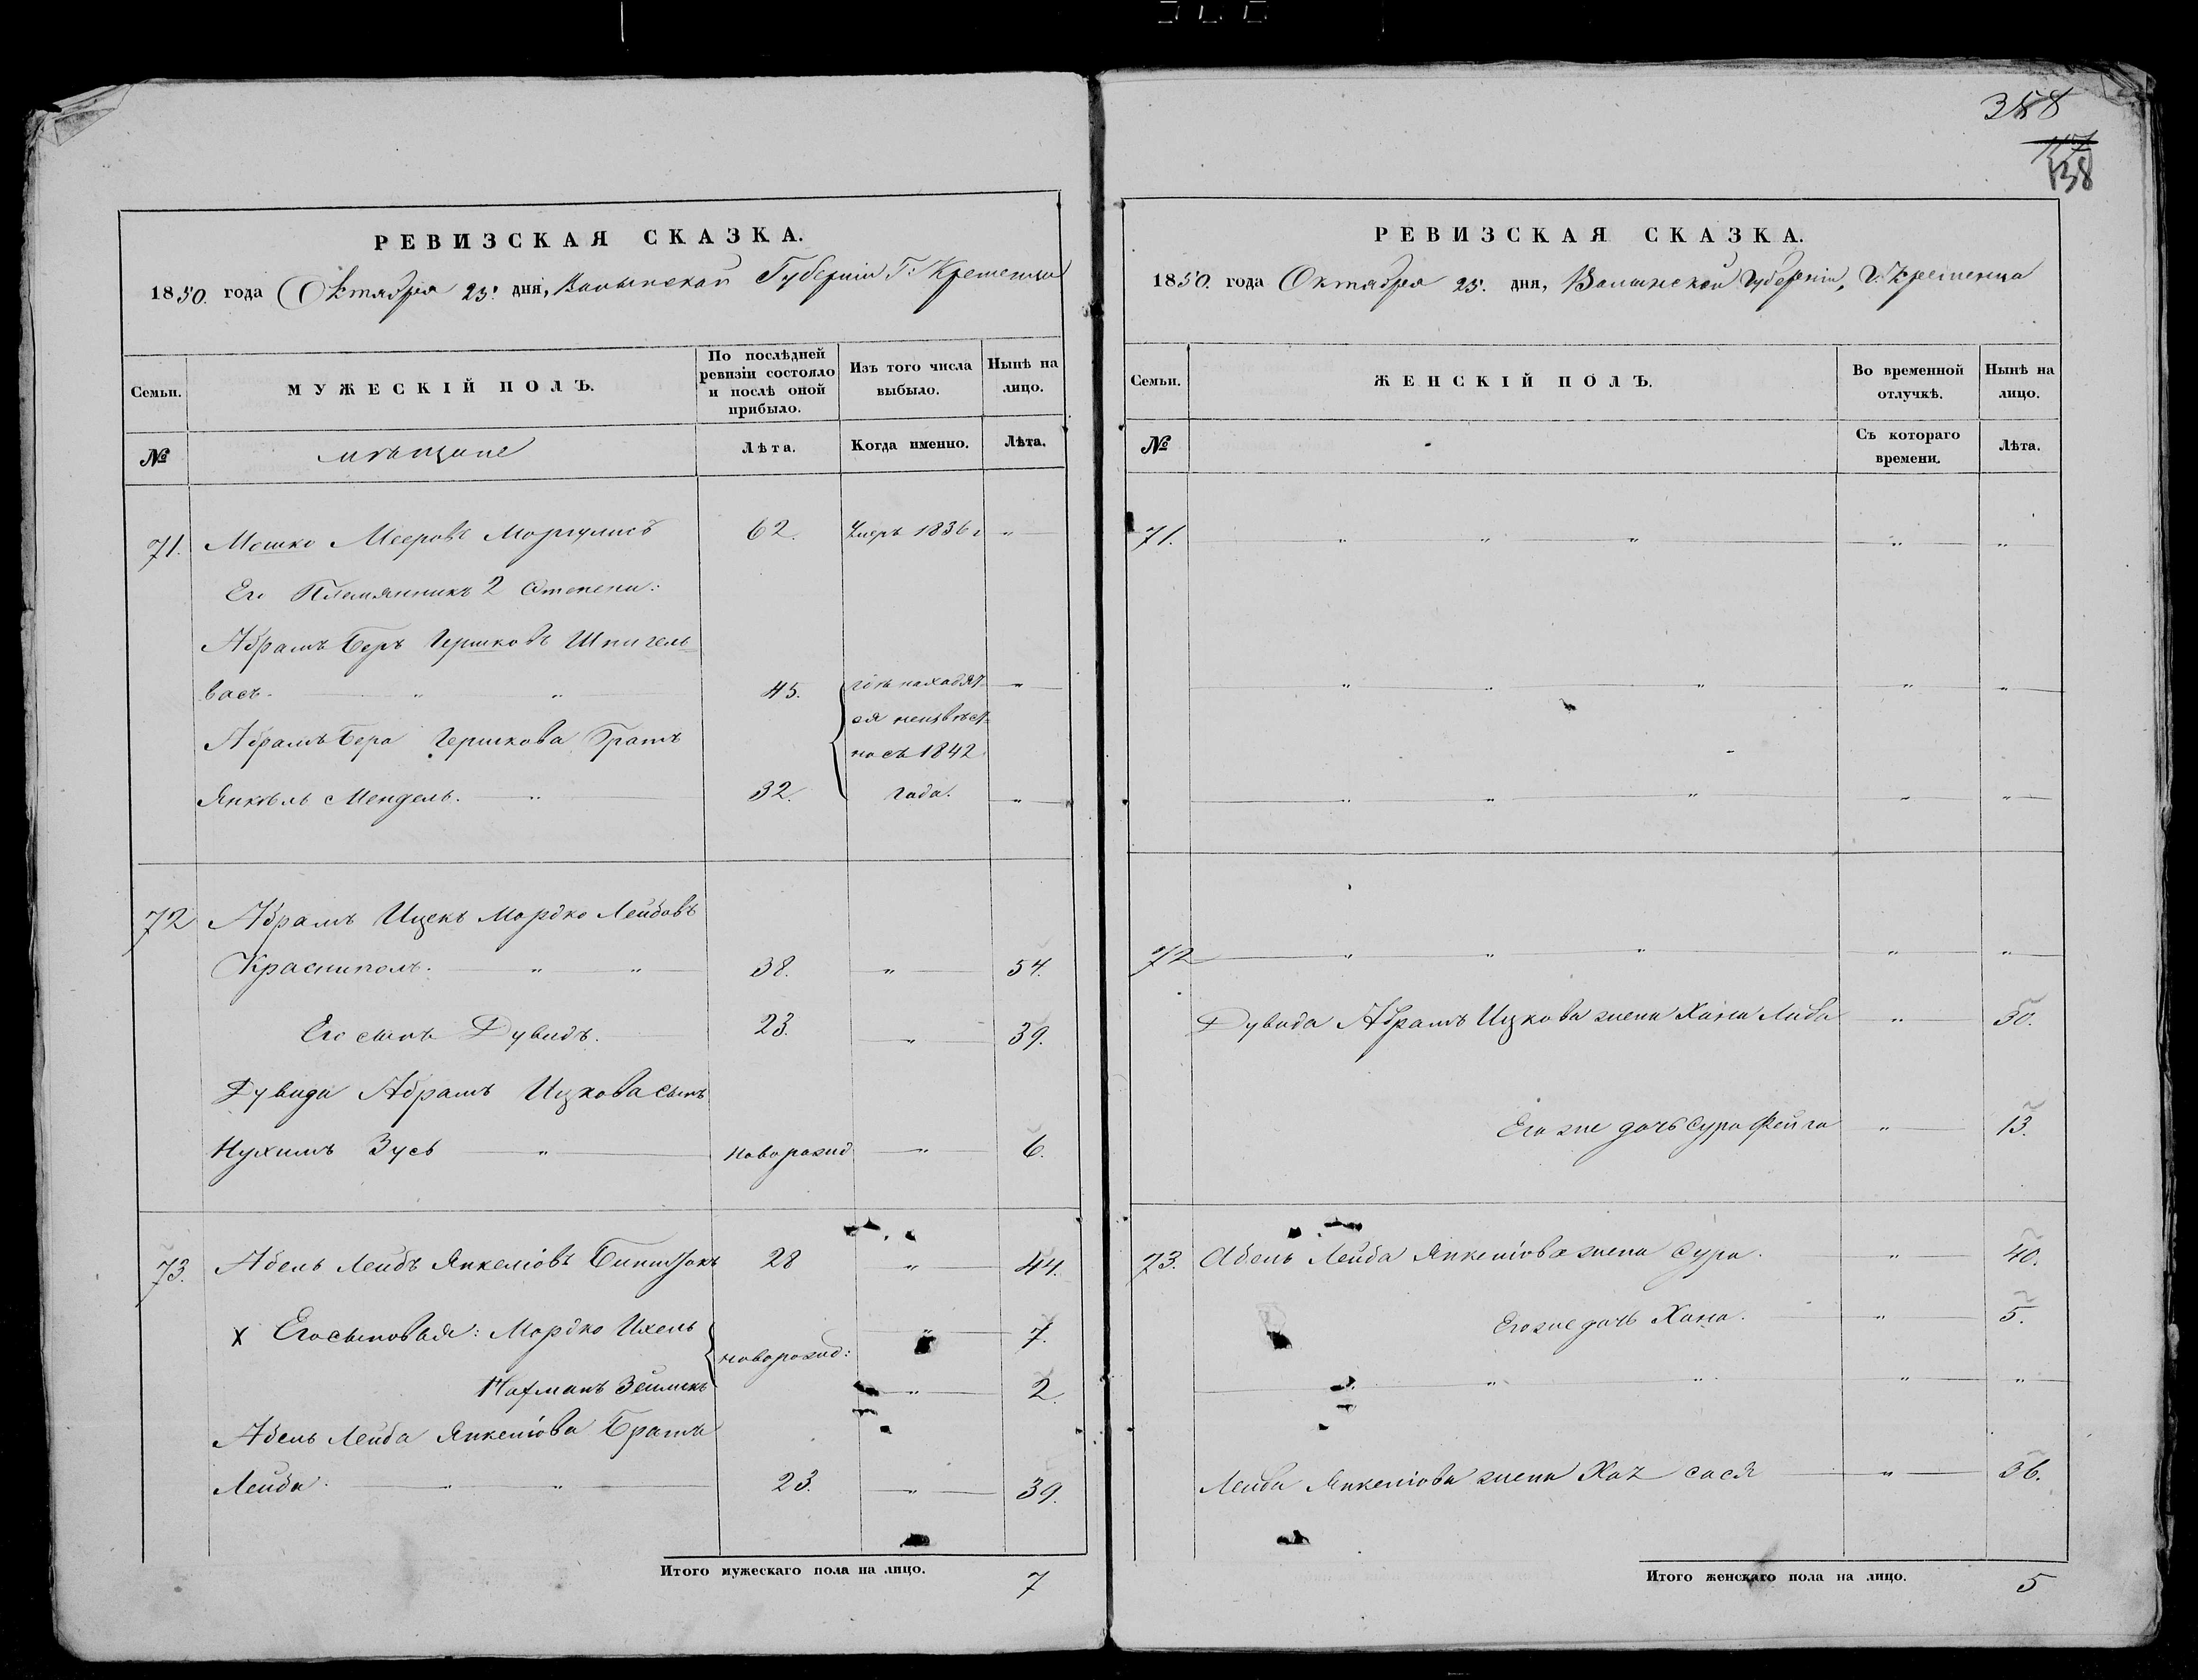 388
138
РЕВИЗСКАЯ СКАЗКА.
1850. года Октября 25. дня, Волынской Губернии Г: Кременца
Семьи.
МУЖЕСКІЙ ПОЛЪ.
По послѣдней ревизіи состояло и послѣ оной прибыло.
Изъ того числа выбыло.
Нынѣ на лицо.
№
мѣщане
Лѣта.
Когда именно.
Лѣта.
71. Мошко Мееровъ Моргулисъ 62. Умеръ 1836 г "
Его Племянникъ 2 степени:
Абрамъ Беръ Гершковъ Шпигель
васъ. " " 45. гдѣ находят- "
ся неизвѣст-
Абрамъ Бера Гершкова Братъ
но съ 1842
Янкель Мендель. " 32. года. "
72 Абрамъ Ицекъ Мордко Лейбовъ
Красниполь. " " 38. " 54.
Его сынъ Дувидъ. 23. " 39.
Дувида Абрамъ Ицкова сынъ
Нухимъ Зусь " новорожд " 6.
73. Абель Лейбъ Янкеліовъ 28 " 44.
х Его сыновья: Мордко Ихель " 7.
новорожд:
Нахманъ Зейликъ " 2.
Абель Лейба Янкеліова Братъ
Лейба. " " 23. " 39.
Итого мужескаго пола на лицо. 7
РЕВИЗСКАЯ СКАЗКА.
1850. года Октября 25. дня, Волынской Губерніи, Г. Кременца
Семьи.
ЖЕНСКІЙ ПОЛЪ.
Во временной отлучкѣ.
Нынѣ на лицо.
№
Съ котораго времени.
Лѣта.
71. " " " " "
" " " " "
" " " " "
72 " " " " "
Дувида Абрамъ Ицкова жена Хана Либа " 30.
Его же дочь Сура Фейга " 13.
73. Абель Лейба Янкеліова жена Сура. " 40.
Его же дочь Хана. " 5.
" " " "
Лейба Янкеліова жена Хая сася " 36.
Итого женскаго пола на лицо. 5